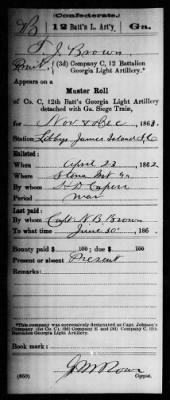 (Confederate.)
B 12 Batt'n L. Art'y. Ga.
J. Brown
Pvt, (3d) Company C, 12 Battalion
Georgia Light Artillery.*
Appears on a
Muster Roll
of Co. C, 12th Batt'n Georgia Light Artillery
detached with Ga. Siege Train,
for Nov & Dec, 1863.
Station James Island S.C.
Enlisted:
When April 23, 1862.
Where Stone Mt Ga
By whom
Period war
Last paid:
By whom Capt. N B Brown
To what time June 30, 186
Bounty paid $ 100; due $ 100
Present or absent Present
Remarks:
*This company was successively designated as Capt. Johnson's
Company (3d) Company C, 12th Battalion
Georgia Light Artillery.
Book mark:
(650) Copyist.